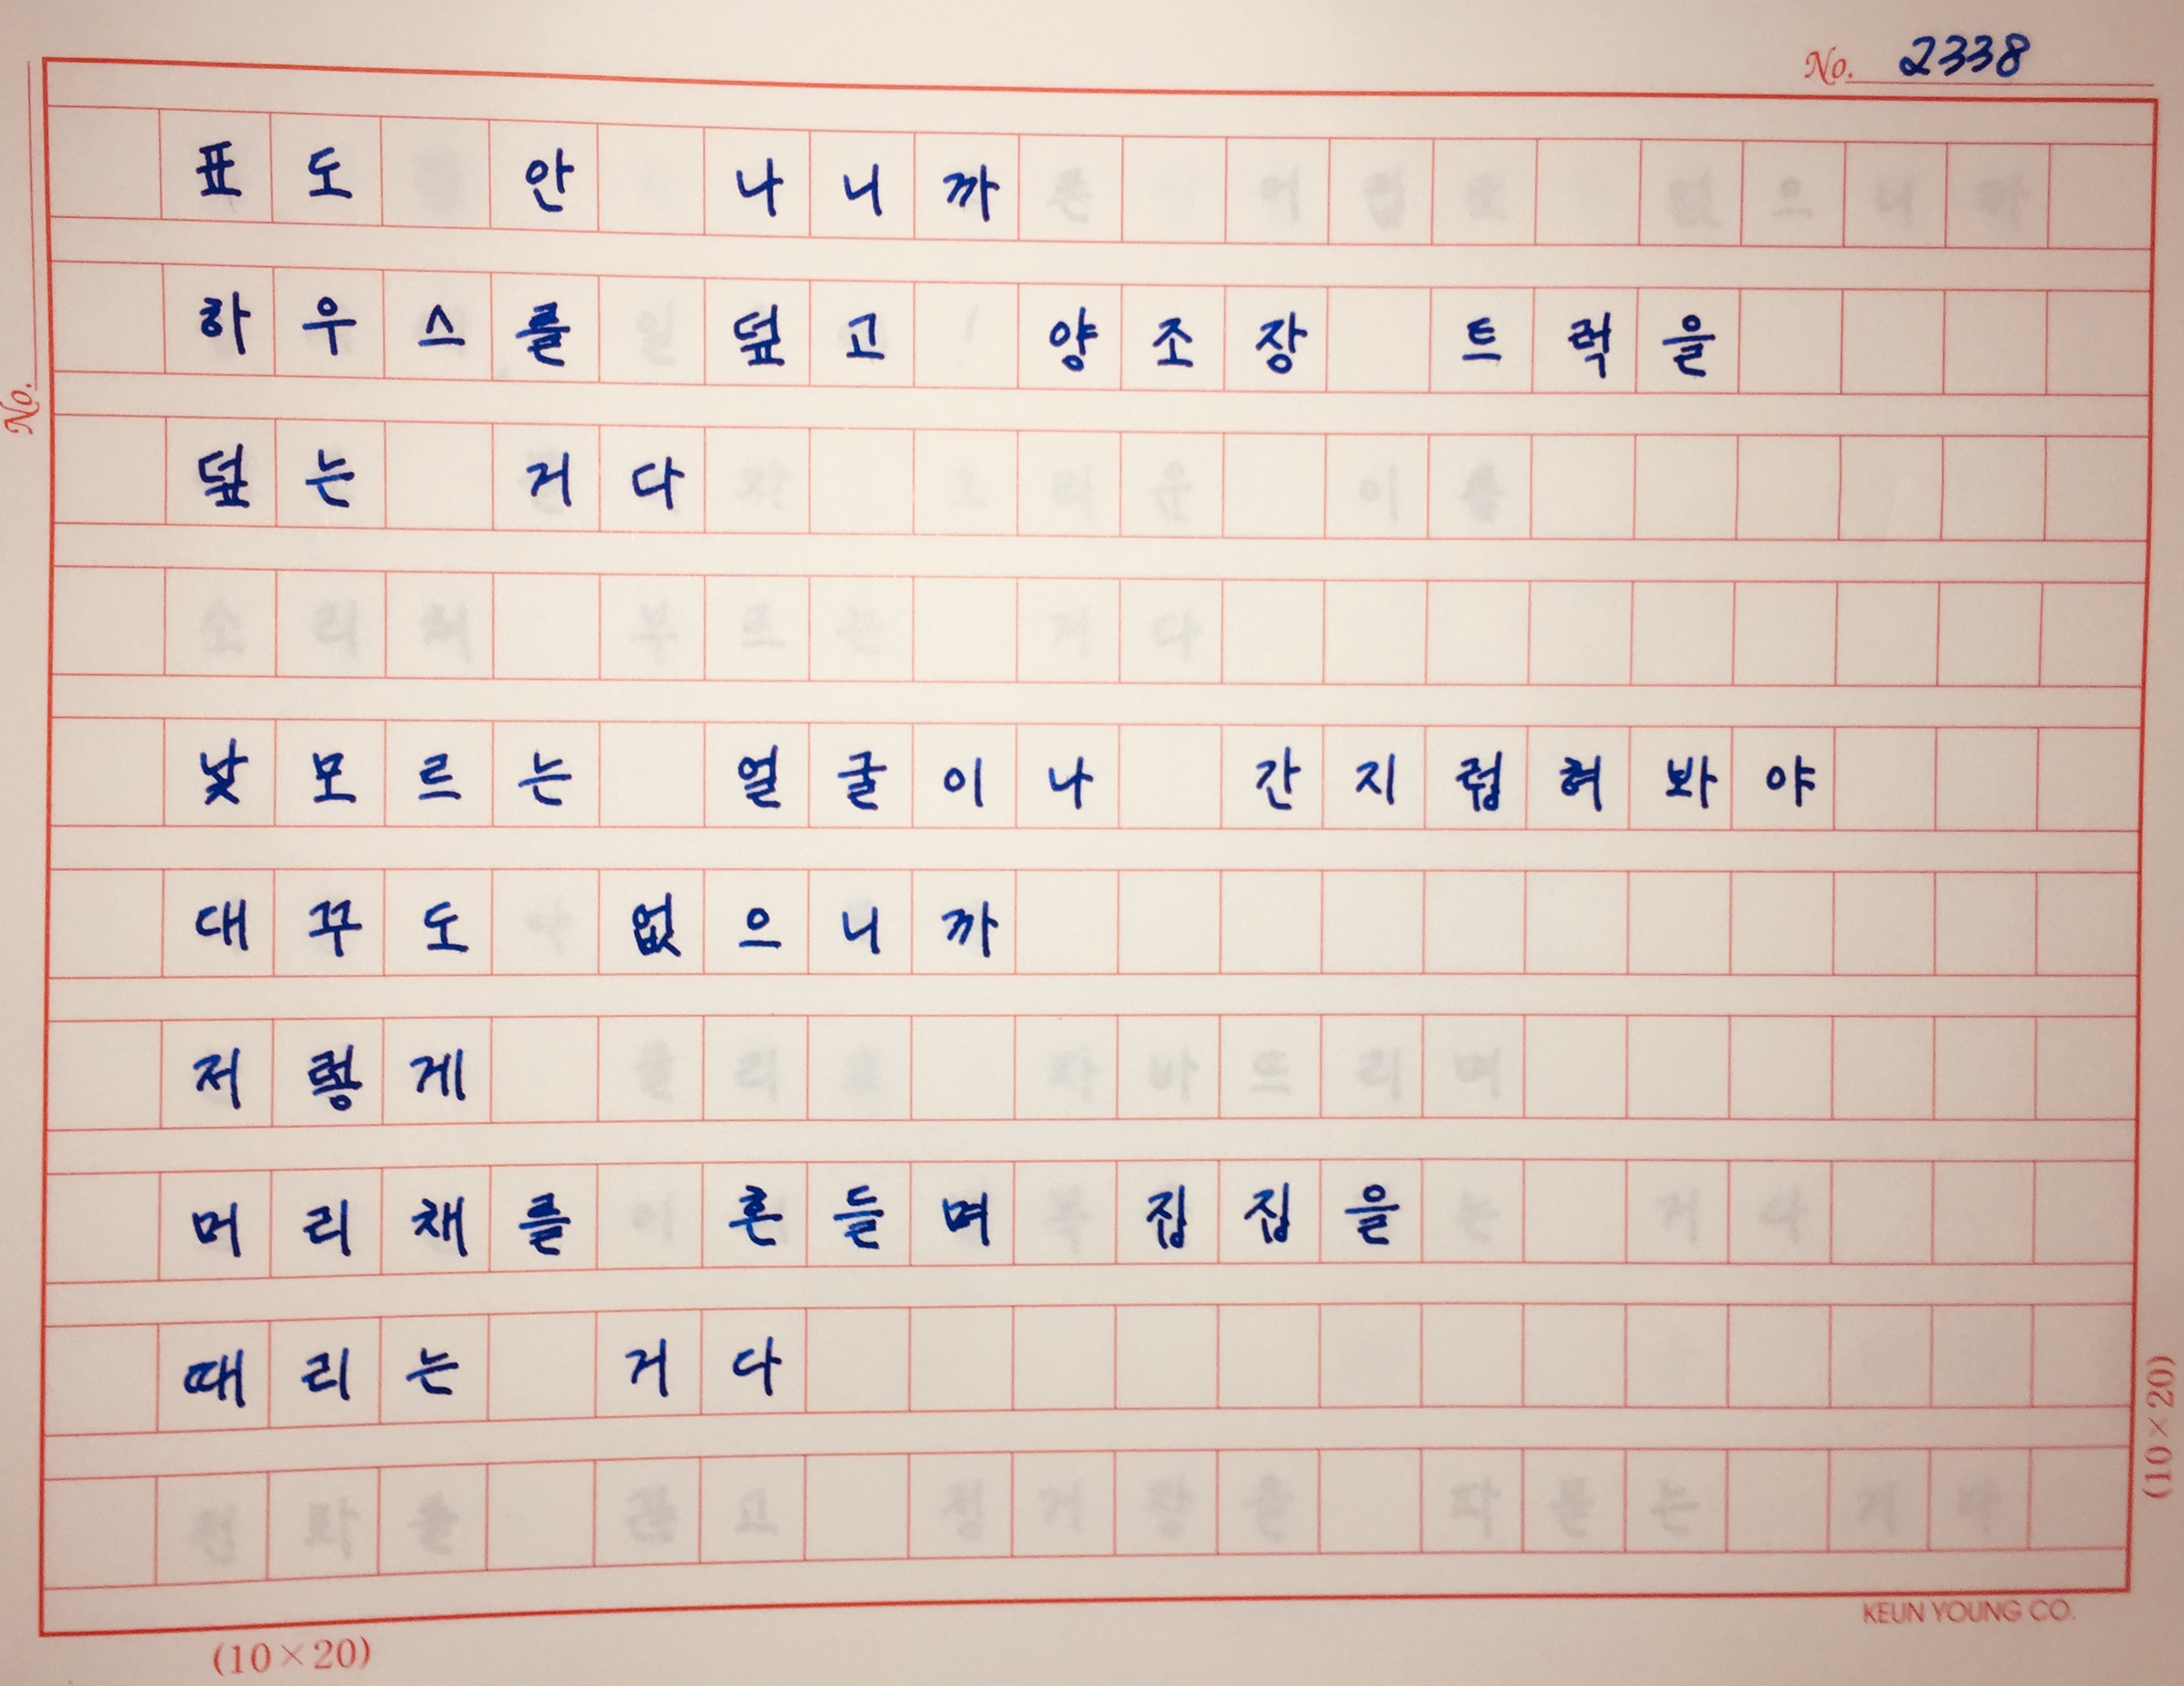 No. 2338
표도 안 나니까
하우스를 덮고 양조장 트럭을
덮는 거다
낯모르는 얼굴이나 간지럽혀봐야
대꾸도 없으니까
저렇게
머리채를 흔들며 집집을
때리는 거다
No.
(10×20)
KEUN YOUNG CO.
(10×20)